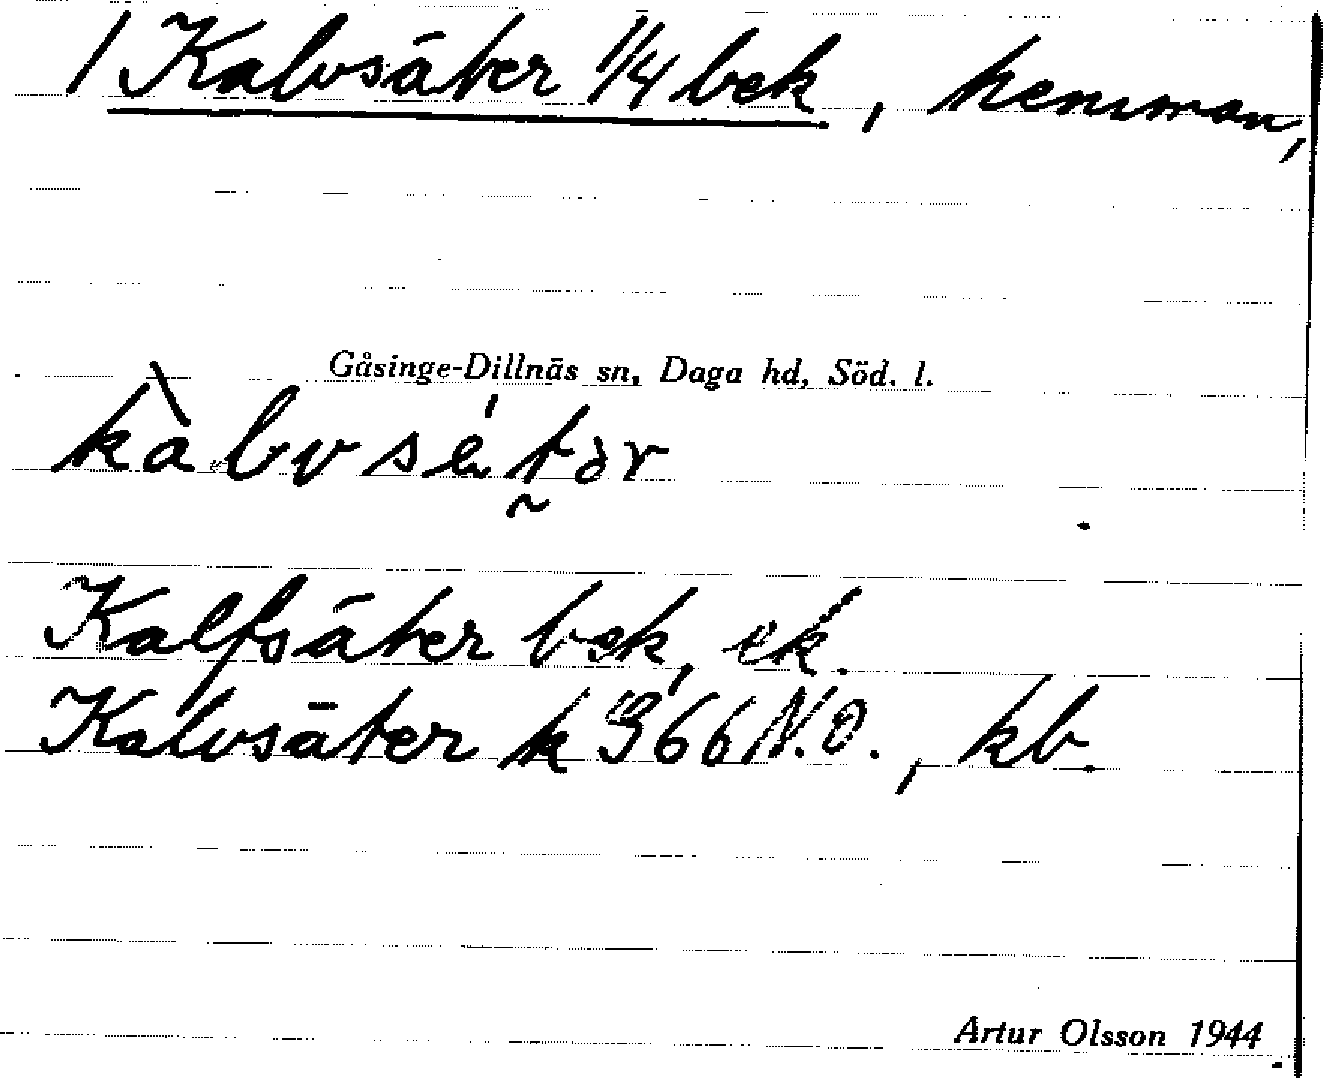 / Kalvsäter 1/4 bek, hemman,
Gåsinge-Dillnäs sn, Daga hd, Söd. l.
Kalfsäter bek, ek.
Kalvsäter k 366 N.O., kb.
Artur Olsson 1944